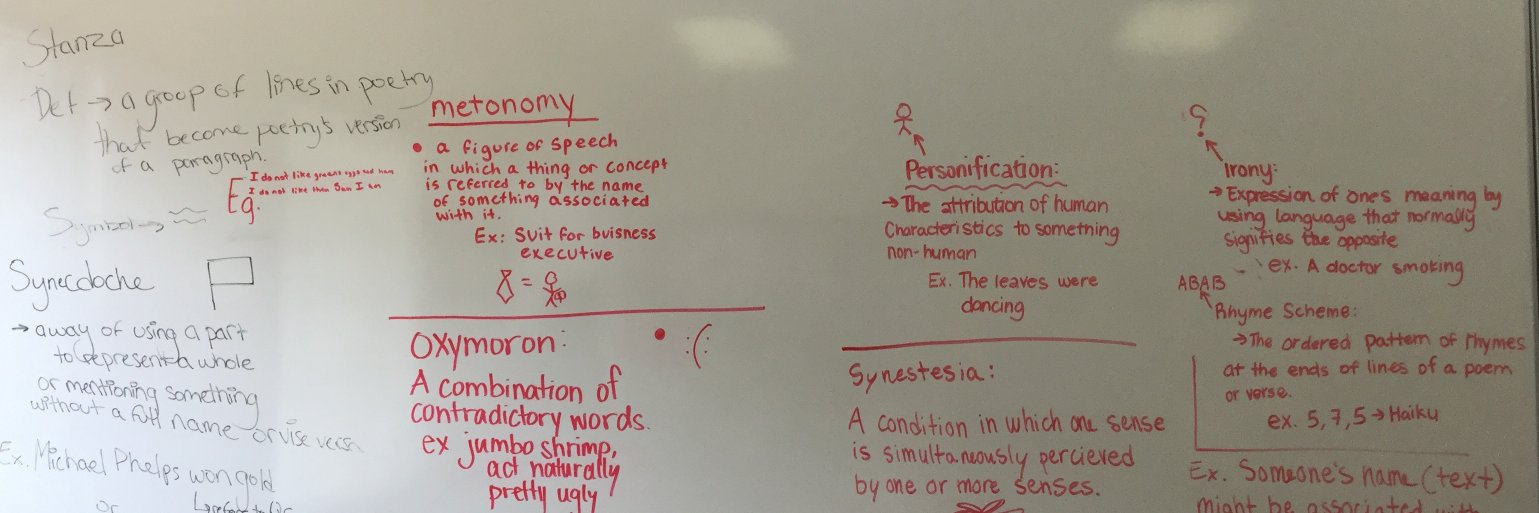 Stanza
Def → a groop of lines in poetry
that become poetry's version
of a paragraph.
Eg. I do not like greens eggs and ham
I do not like them Sam I am
Symbol →
Synecdoche
→ away of using a part
to represent a whole
or mentioning something
without a full name or vise versa
Ex. Michael Phelps won gold
or
metonomy
• a figure of speech
in which a thing or concept
is referred to by the name
of something associated
with it.
Ex: Suit for buisness
executive
=
Oxymoron:
:(
A combination of
contradictory words.
ex jumbo shrimp,
act naturally
pretty ugly
Personification:
→ The attribution of human
Characteristics to something
non-human
Ex. The leaves were
dancing
Synestesia:
A condition in which one sense
is simultaneously percieved
by one or more senses.
?
Irony:
→ Expression of one's meaning by
using language that normally
signifies the opposite
ex. A doctor smoking
ABAB
Rhyme Scheme:
→ The ordered pattern of rhymes
at the ends of lines of a poem
or verse.
ex. 5, 7, 5 → Haiku
Ex. Someone's name (text)
might be associated with